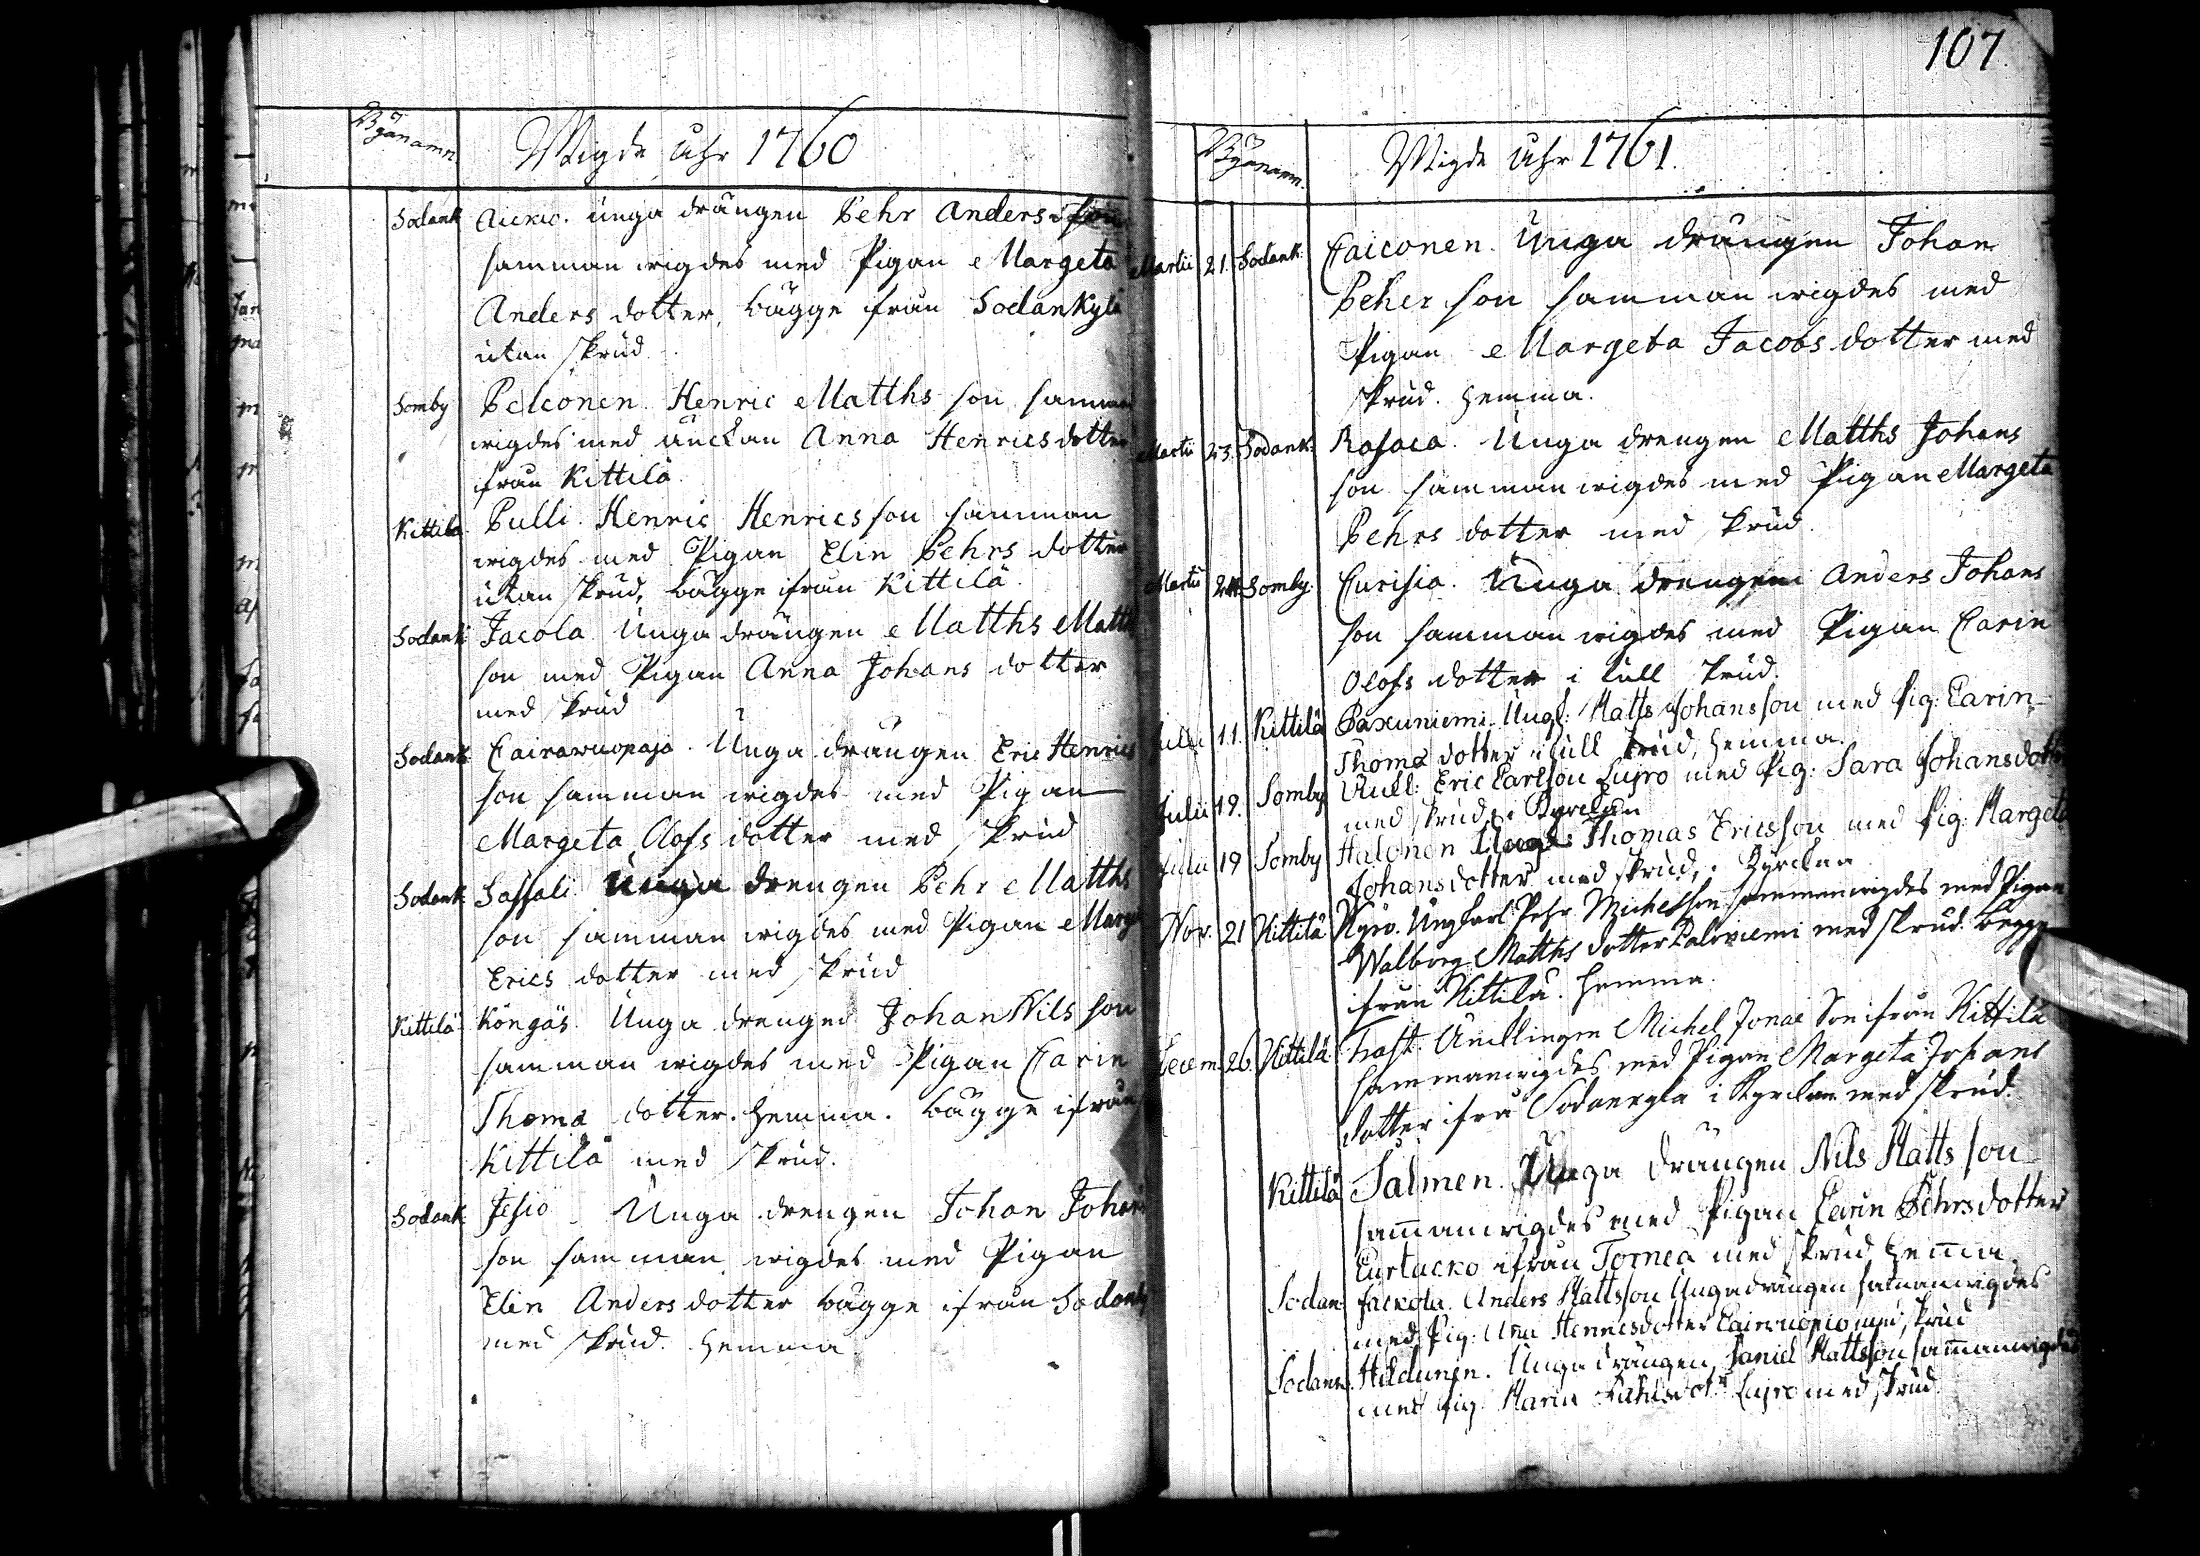 107.
Bynamn
Wigde Åhr 1760
Sodank Aickio. unga drängen Pehr Andersson
samman wigdes med Pigan Margeta
Anders dotter, bägge från Sodankylä
utan skrud.
Somby Pelconen. Henric Matths son samman
wigdes med änckan Anna Henricsdotter
från Kittilä.
Kittilä Pulli. Henric Henrics son samman
wigdes med Pigan Elin Pehrs dotter
utan skrud, bägge ifrån Kittilä.
Sodank Jacola. Unga drängen Matths Matths
son med Pigan Anna Johans dotter
med skrud
Sodank Cairawuopajo. Unga drängen Eric Henrics
son samman wigdes med Pigan
Margeta Olofs dotter med skrud
Sodank Sassali. Unga drengen Pehr Matths
son samman wigdes med Pigan Marge
Erics dotter med skrud
Kittilä Köngäs. Unga drengen Johan Nils son
samman wigdes med Pigan Carin
Thomæ dotter. hemma. bägge ifrån
Kittilä med skrud.
Sodank Jesio. Unga drengen Johan Johans
son samman wigdes med Pigan
Elin Anders dotter bägge ifrån Sodank
med skrud. hemma
Bynamn.
Wigde Åhr 1761.
Martii 21. Sodank. Caiconen. Unga drängen Johan
Peher son samman wigdes med
Pigan Margeta Jacobs dotter med
skrud. hemma.
Martii 23. Sodank. Unga drengen Matths Johans
son samman wigdes med Pigan Margeta
Pehrs dotter med skrud.
Martii 24. Somby. Unga drengen Anders Johans
son samman wigdes med Pigan Carin
Olofs dotter i full skrud.
Julii 11. Kittilä Paxuniemi. Matts Johansson med Pig: Carin
Thomæ dotter i full skrud, hemma.
Julii 19. Somby Eric Carlsson Lujro med Pig: Sara Johansdotter
med skrud, i Kyrckan
Julii 19 Somby Halonen Thomas Ericsson med Pig: Margeta
Johansdotter med skrud, i Kyrckan
Nov. 21 Kittilä Kyrö. Ungkarl Pehr Michelsson sammanwigdes med Pigan
Walborg Matths dotter Paloniemi med skrud. begge
ifrån Kittilä. hemma.
Decem. 26. Kittilä Trast. Michel Jonæ Son ifrån Kittilä
sammanwigdes med Pigan Margeta Johans
dotter ifrå Sodankyla i Kyrckan med skrud.
Kittilä Salmen. Unga drängen Nils Matts son
sam̅anwigdes med Pigan Carin Pehrsdotter
Curtacko ifrån Tornea med skrud hem̅a.
Sodan Jackola. Anders Mattsson Unga drängen sam̅anwigdes
med Pig: Henricsdotter med skrud
Sodank. Unga drängen Daniel Mattsson sam̅anwigdes
med Pig. Maria Lujro med skrud.